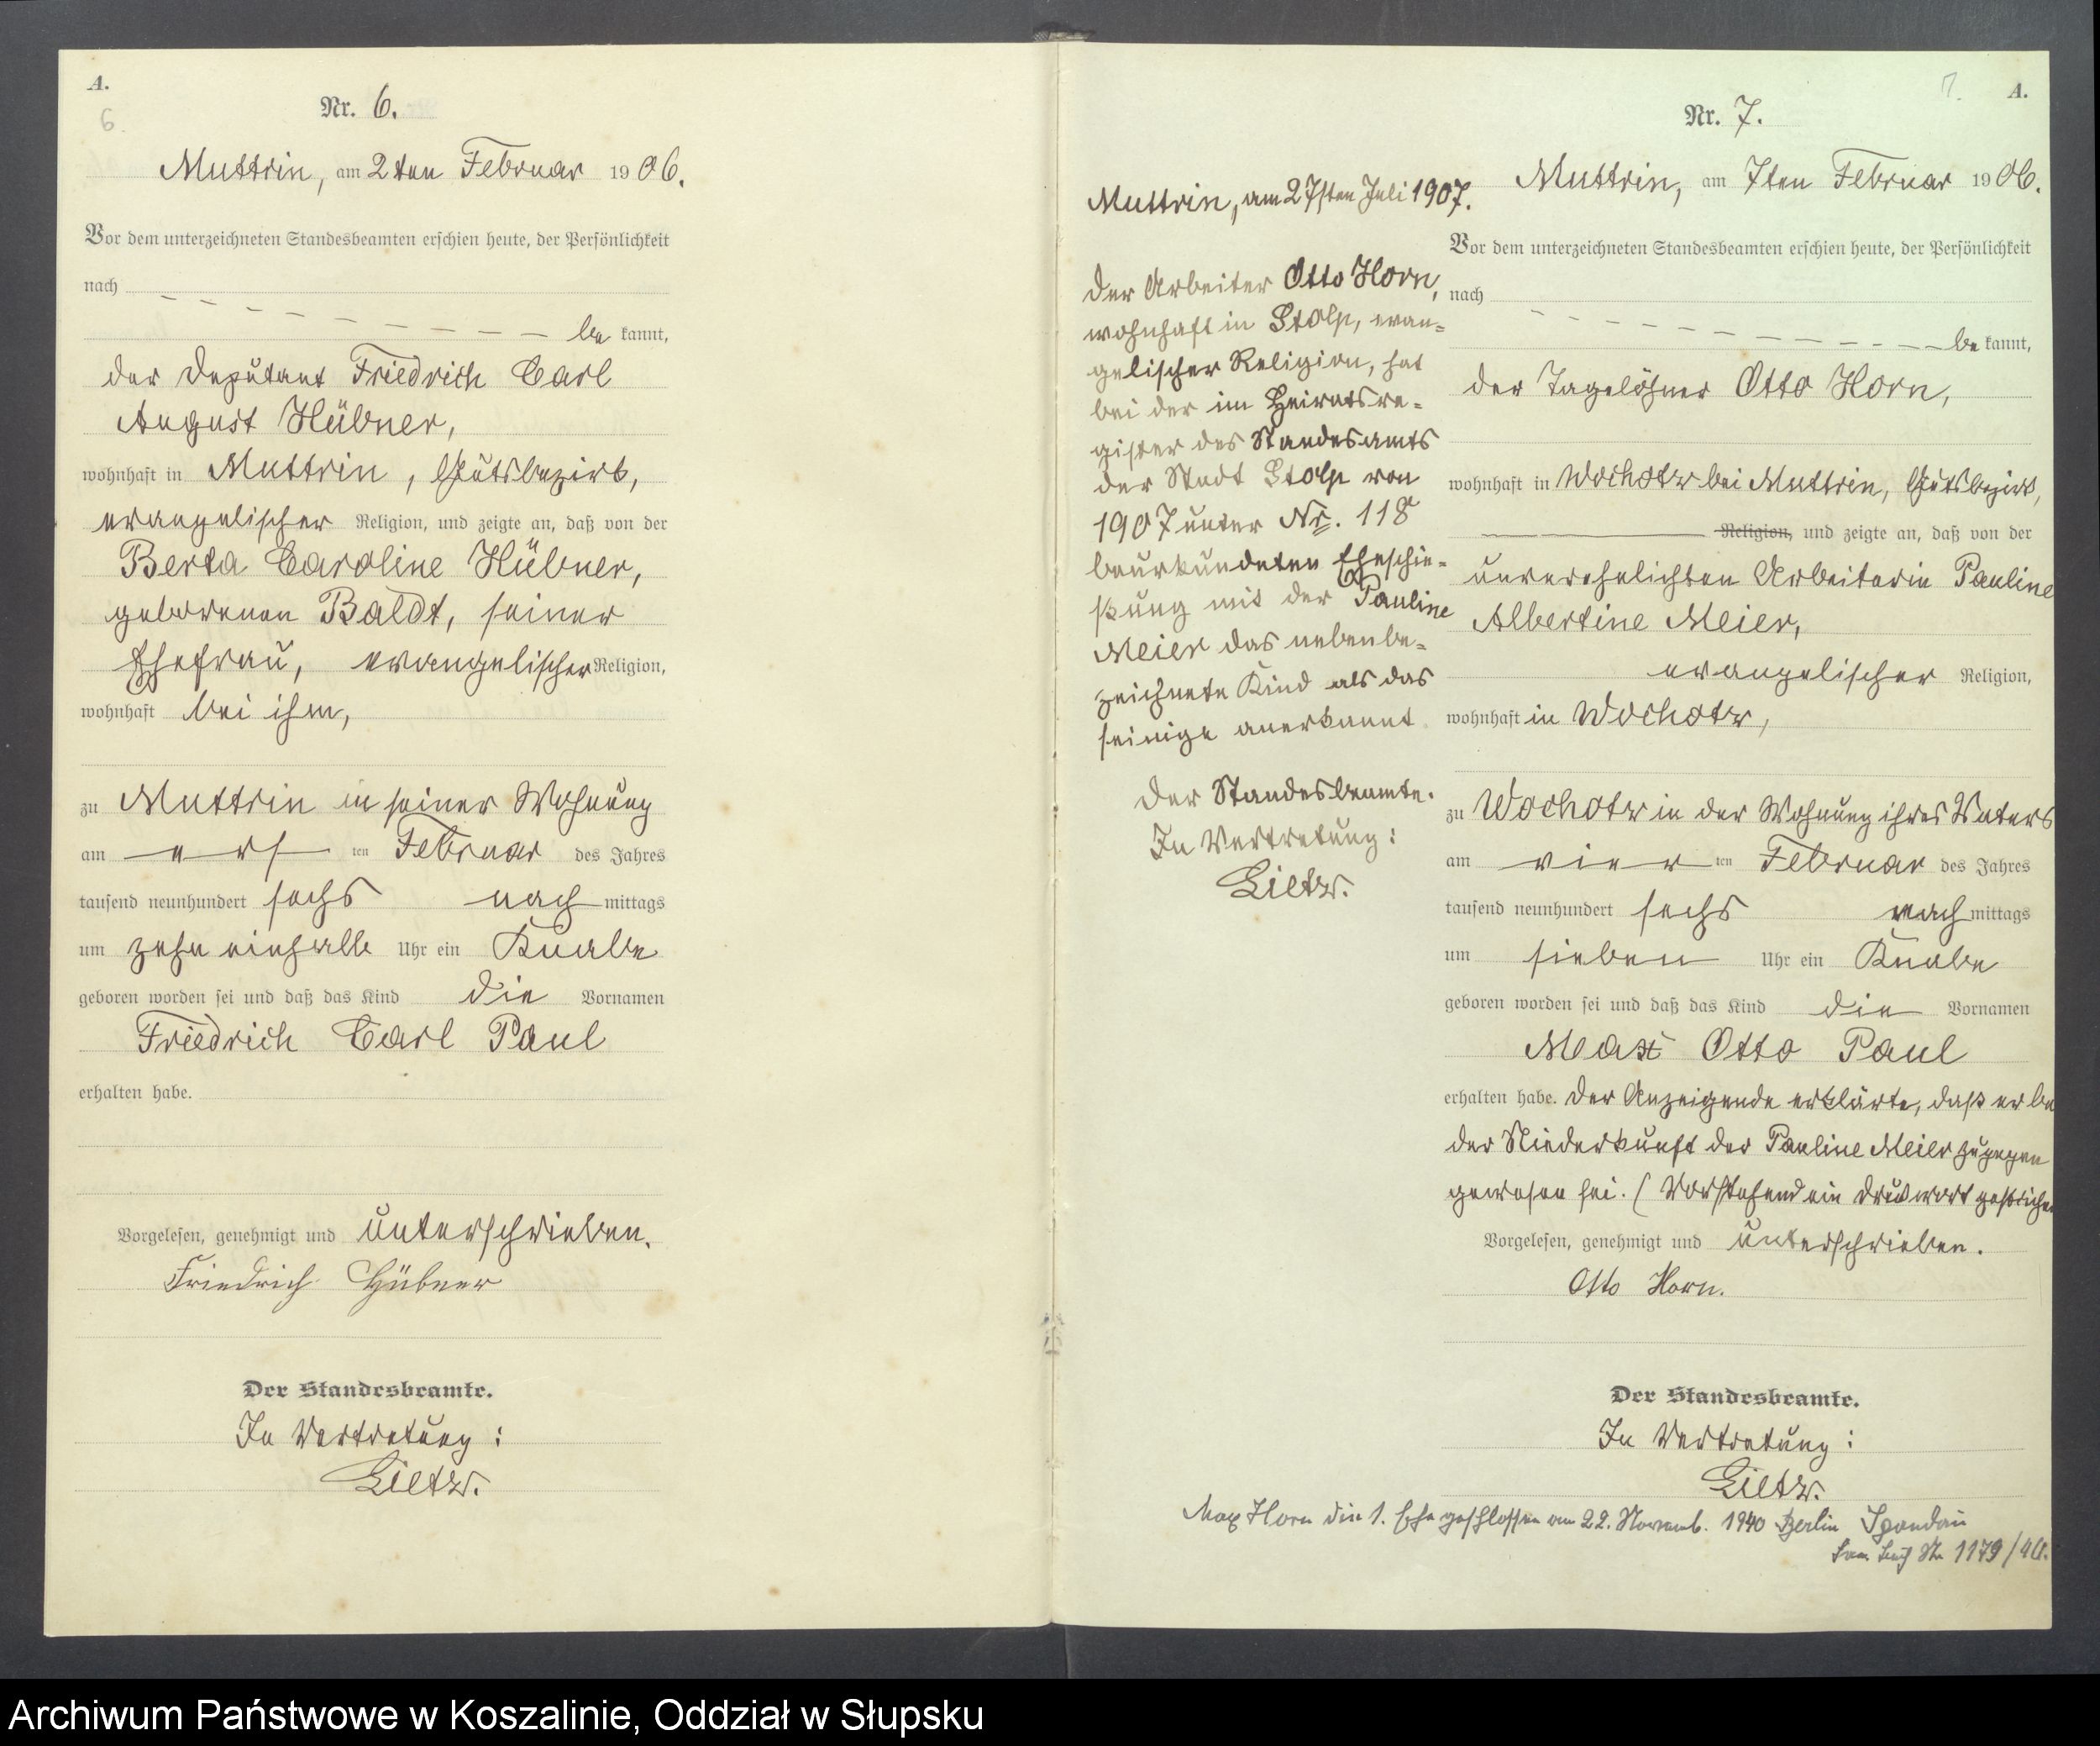 A.
6.
Nr. 6.
Muttrin, am 2ten Februar 1906.
Vor dem unterzeichneten Standesbeamten erschien heute, der Persönlichkeit
nach
be kannt,
der Deputant Friedrich Carl
August Hübner,
wohnhaft in Muttrin, Gutsbezirk,
evangelischer Religion, und zeigte an, daß von der
Berta Caroline Hübner,
geborenen Baldt, seiner
Ehefrau, evangelischer Religion,
wohnhaft bei ihm,
zu Muttrin in seiner Wohnung
am erst ten Februar des Jahres
tausend neunhundert sechs nach mittags
um zehn einhalb Uhr ein Knabe
geboren worden sei und daß das Kind die Vornamen
Friedrich Carl Paul
erhalten habe.
Vorgelesen, genehmigt und unterschrieben.
Friedrich Hübner
Der Standesbeamte.
In Vertretung:
Lietz.
7. A.
Nr. 7.
Muttrin, am 7ten Februar 1906.
Vor dem unterzeichneten Standesbeamten erschien heute, der Persönlichkeit
nach
be kannt,
der Tagelöhner Otto Horn,
wohnhaft in Wochotz bei Muttrin, Gutsbezirk,
Religion, und zeigte an, daß von der
unverehelichten Arbeiterin Pauline
Albertine Meier,
evangelischer Religion,
wohnhaft in Wochotz,
zu Wochotz in der Wohnung ihres Vaters
am vier ten Februar des Jahres
tausend neunhundert sechs nach mittags
um sieben Uhr ein Knabe
geboren worden sei und daß das Kind die Vornamen
Max Otto Paul
erhalten habe. Der Anzeigende erklärte, daß er be
der Niederkunft der Pauline Meier zugegen
gewesen sei. (Vorstehend ein Druckwort gestrichen
Vorgelesen, genehmigt und unterschrieben.
Otto Horn.
Der Standesbeamte.
In Vertretung:
Lietz.
Muttrin, am 27sten Juli 1907.
Der Arbeiter Otto Horn,
wohnhaft in Stolp, evan=
gelischer Religion, hat
bei der im Heiratsre=
gister des Standesamts
der Stadt Stolp von
1907 unter Nr. 118
beurkundeten Eheschlie=
ßung mit der Pauline
Meier das nebenbe=
zeichnete Kind als das
seinige anerkannt
Der Standesbeamte.
In Vertretung:
Lietz.
Max Horn die 1. Ehe geschlossen am 22. Novemb. 1940 Berlin Spandau
1179/40.
Archiwum Państwowe w Koszalinie, Oddział w Słupsku